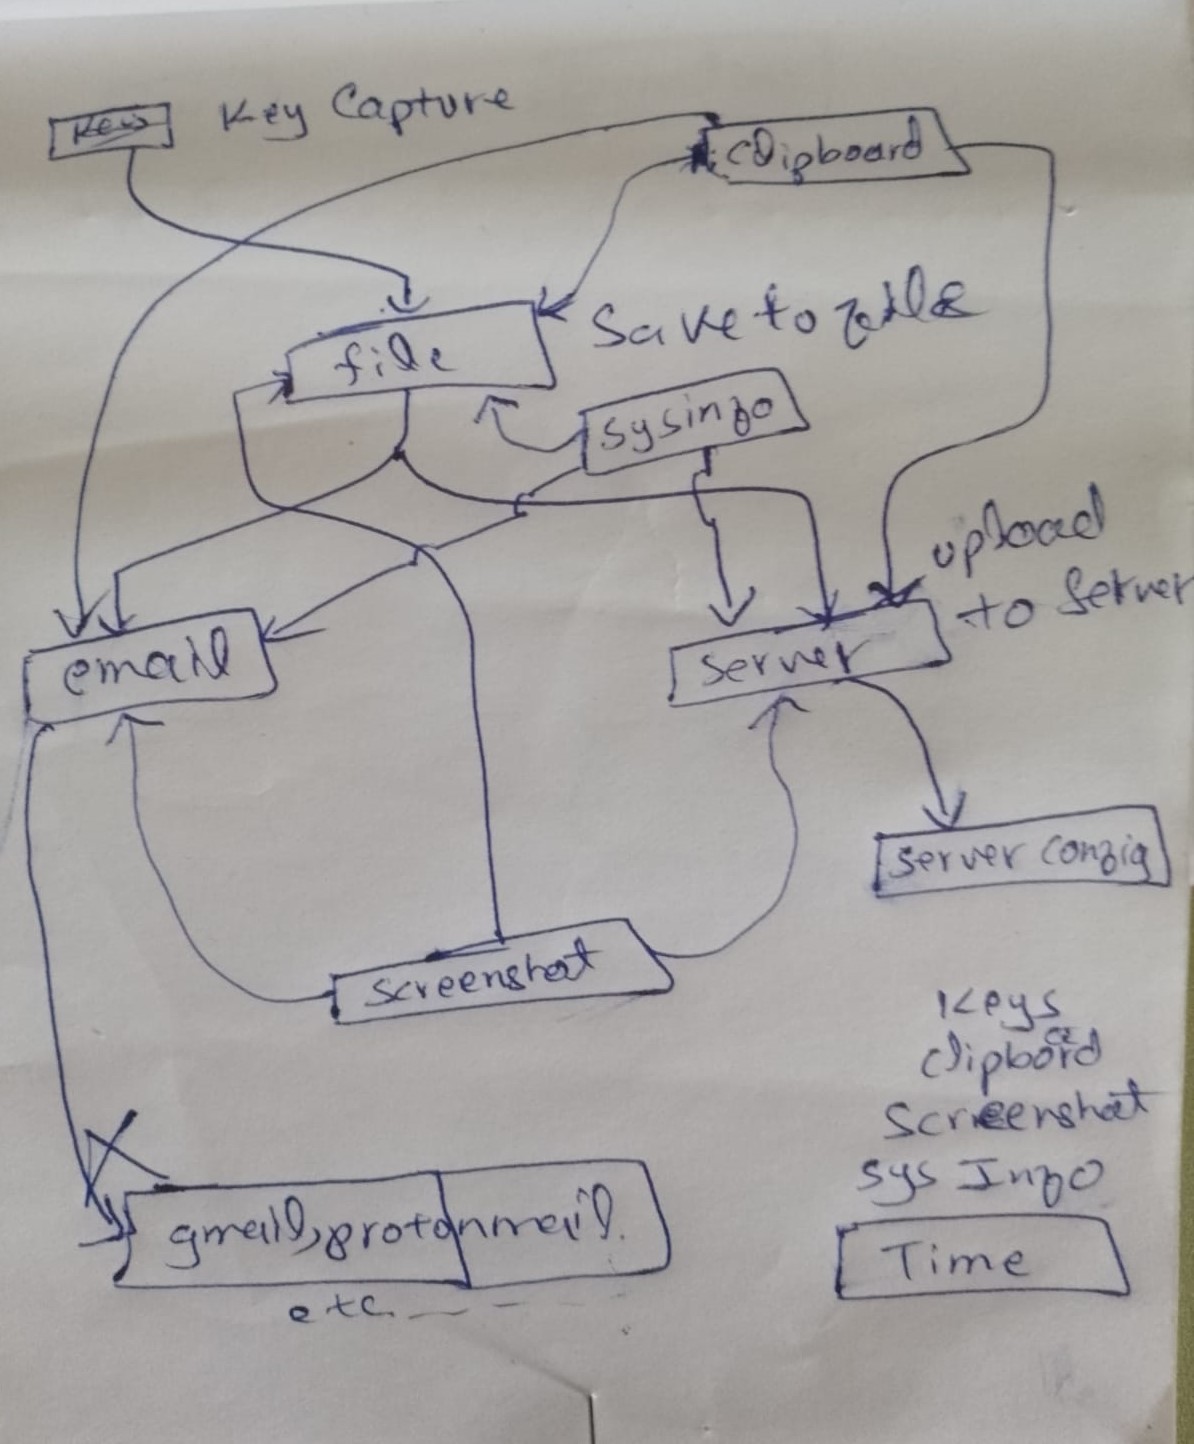 Keys
Key Capture
Clipboard
file
Save to file
sysinfo
upload
to server
email
server
server config
screenshot
Keys
clipbord
Screenshot
Sys Info
gmail, protonmail.
Time
etc.